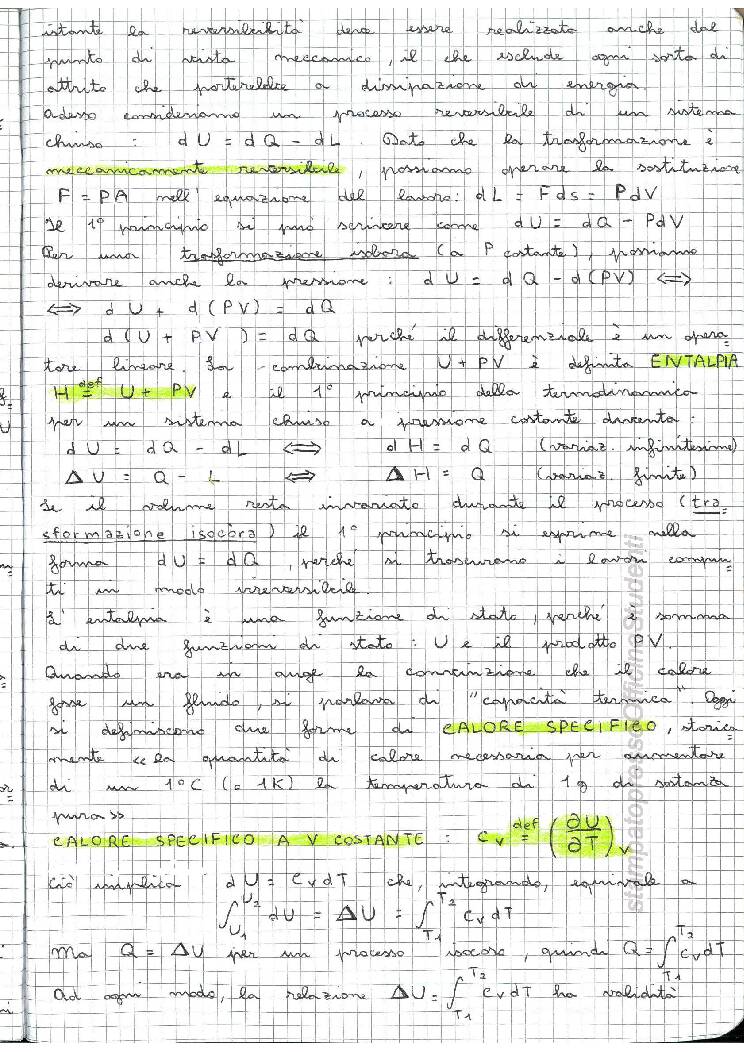 istante la reversibilità deve essere realizzata anche dal
punto di vista meccanico, il che esclude ogni sorta di
attrito che porterebbe a dissipazione di energia.
Adesso consideriamo un processo reversibile di un sistema
chiuso : dU = dQ - dL. Dato che la trasformazione è
meccanicamente reversibile, possiamo operare la sostituzione
F = PA nell' equazione del lavoro: dL = Fds = PdV
Il 1° principio si può scrivere come dU = dQ - PdV
Per una trasformazione isobara (a P costante), possiamo
derivare anche la pressione : dU = dQ - d(PV) ⟺
⟺ dU + d(PV) = dQ
d(U + PV) = dQ perché il differenziale è un opera
tore lineare. La combinazione U + PV è definita ENTALPIA
H def= U + PV e il 1° principio della termodinamica
per un sistema chiuso a pressione costante diventa :
dU = dQ - dL ⟺ dH = dQ (variaz. infinitesime)
ΔU = Q - L ⟺ ΔH = Q (variaz. finite)
Se il volume resta invariato durante il processo (tra
sformazione isocòra) il 1° principio si esprime nella
forma dU = dQ, perché si trascurano i lavori compiu
ti in modo irreversibile.
L' entalpia è una funzione di stato, perché è somma
di due funzioni di stato : U e il prodotto PV.
Quando era in auge la convinzione che il calore
fosse un fluido, si parlava di "capacità termica". Oggi
si definiscono due forme di CALORE SPECIFICO, storica
mente «la quantità di calore necessaria per aumentare
di un 1°C (= 1K) la temperatura di 1g di sostanza
pura»
CALORE SPECIFICO A V COSTANTE : cv def= (∂U/∂T)v
Ciò implica dU = cvdT che, integrando, equivale a
∫U1U2 dU = ΔU = ∫T1T2 cvdT
Ma Q = ΔU per un processo isocoro, quindi Q = ∫T1T2 cvdT
Ad ogni modo, la relazione ΔU = ∫T1T2 cvdT ha validità
stampatopressoOfficinaStudenti